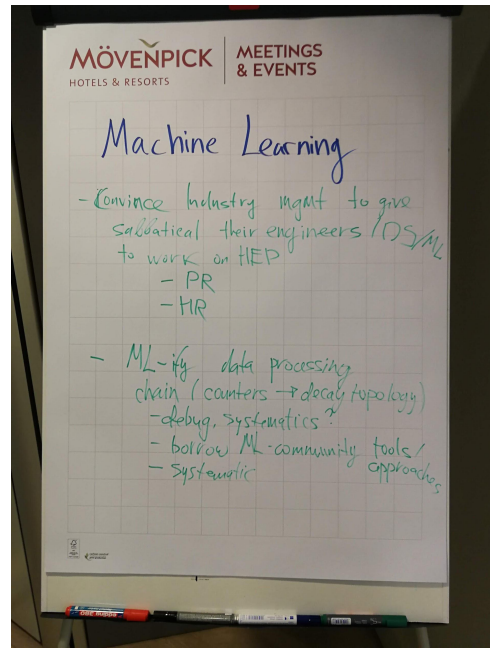 MÖVENPICK
HOTELS & RESORTS
MEETINGS
& EVENTS
Machine Learning
- Convince Industry mgmt to give
sabbatical their engineers / DS/ML
to work on HEP
- PR
- HR
- ML-ify data processing
chain (counters → decay topology)
- debug, systematics?
- borrow ML-community tools/
approaches
- systematic